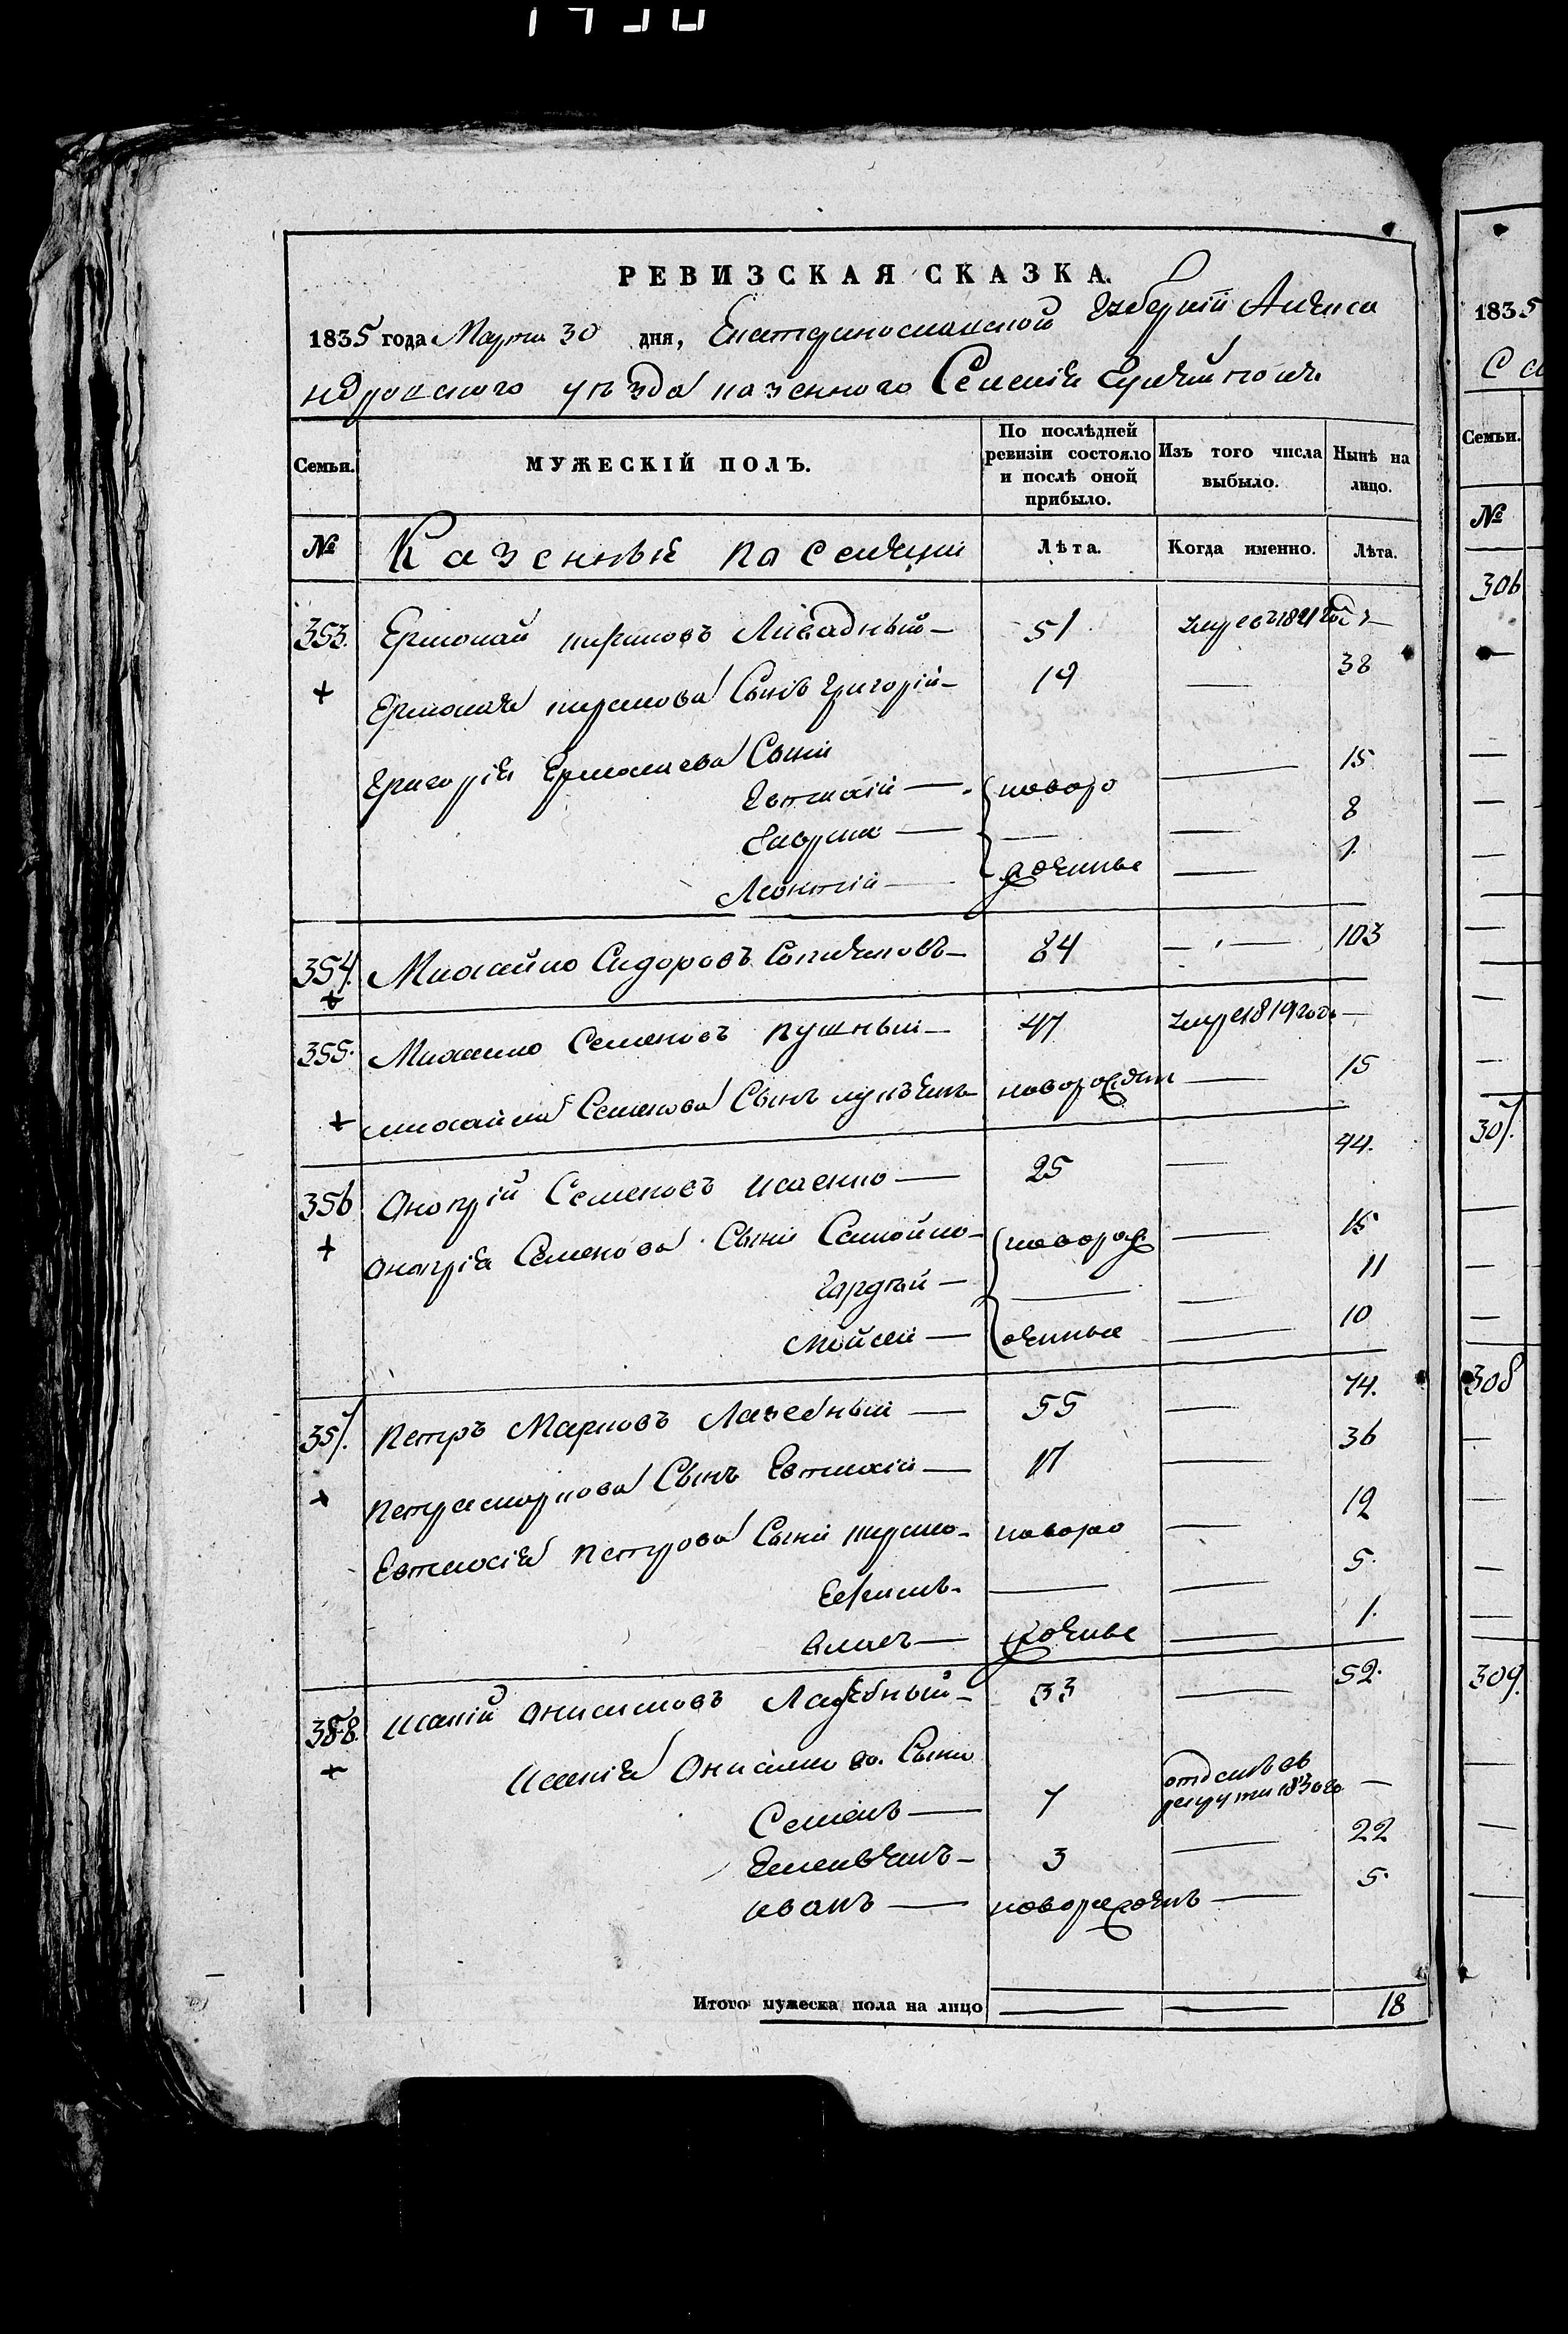 РЕВИЗСКАЯ СКАЗКА.
1835 года Марта 30 дня, Екатеринославской Губерніи Алекса
ндровского уѣзда казенного Селенія
Семьи. МУЖЕСКІЙ ПОЛЪ. По послѣдней ревизіи состояло и послѣ оной прибыло. Изъ того числа выбыло. Нынѣ на лицо.
№ Казенные поселяни Лѣта. Когда именно. Лѣта.
353. Ермолай Кириловъ Ливадный — 51 умре въ 1821 годѣ —
Ермолая Кирилова Сынъ Григорій — 19 — 38
Григорія Ермолаева Сыни
Евтихій — новоро — 15
Гаврила — — — 8
Леонтій — жденые — 1.
354. Михайло Сидоровъ — 84 — 103
355. Михайло Семеновъ Пушный — 47 умре 1819 года —
Михайла Семенова Сынъ — новорожден — 15
356 Онопрій Семеновъ Исаенко — 25 — 44.
Онопрія Семенова Сыни Самойло — новорож — 15
Гордѣй — — — 11
Мойсей — деные — 10
357. Петръ Марковъ Лазебный — 55 — 74.
Петра Маркова Сынъ Евтихій — 17 — 36
Евтихія Петрова Сыни Кирило — новоро — 12
Ефимъ — — — 5.
Власъ — жденые — 1.
358. Исакій Онисимовъ Лазебный — 33 — 52.
Исакія Онисимова Сыни
Семенъ — 7 отданъ въ рекруты 1830 го —
Емельянъ — 3 — 22
Иванъ — новорожденъ — 5.
Итого мужеска пола на лицо — — 18
1835
С
Семьи.
№
306
307.
308
309.